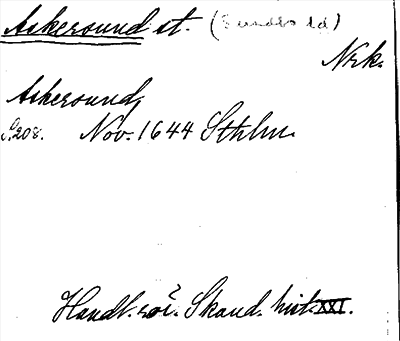 Askersund st. (Sundbo hd)
Nrk.
Askersund,
S. 208. Nov. 1644 Sthlm.
Handl. rör. Skand. hist. XXI.